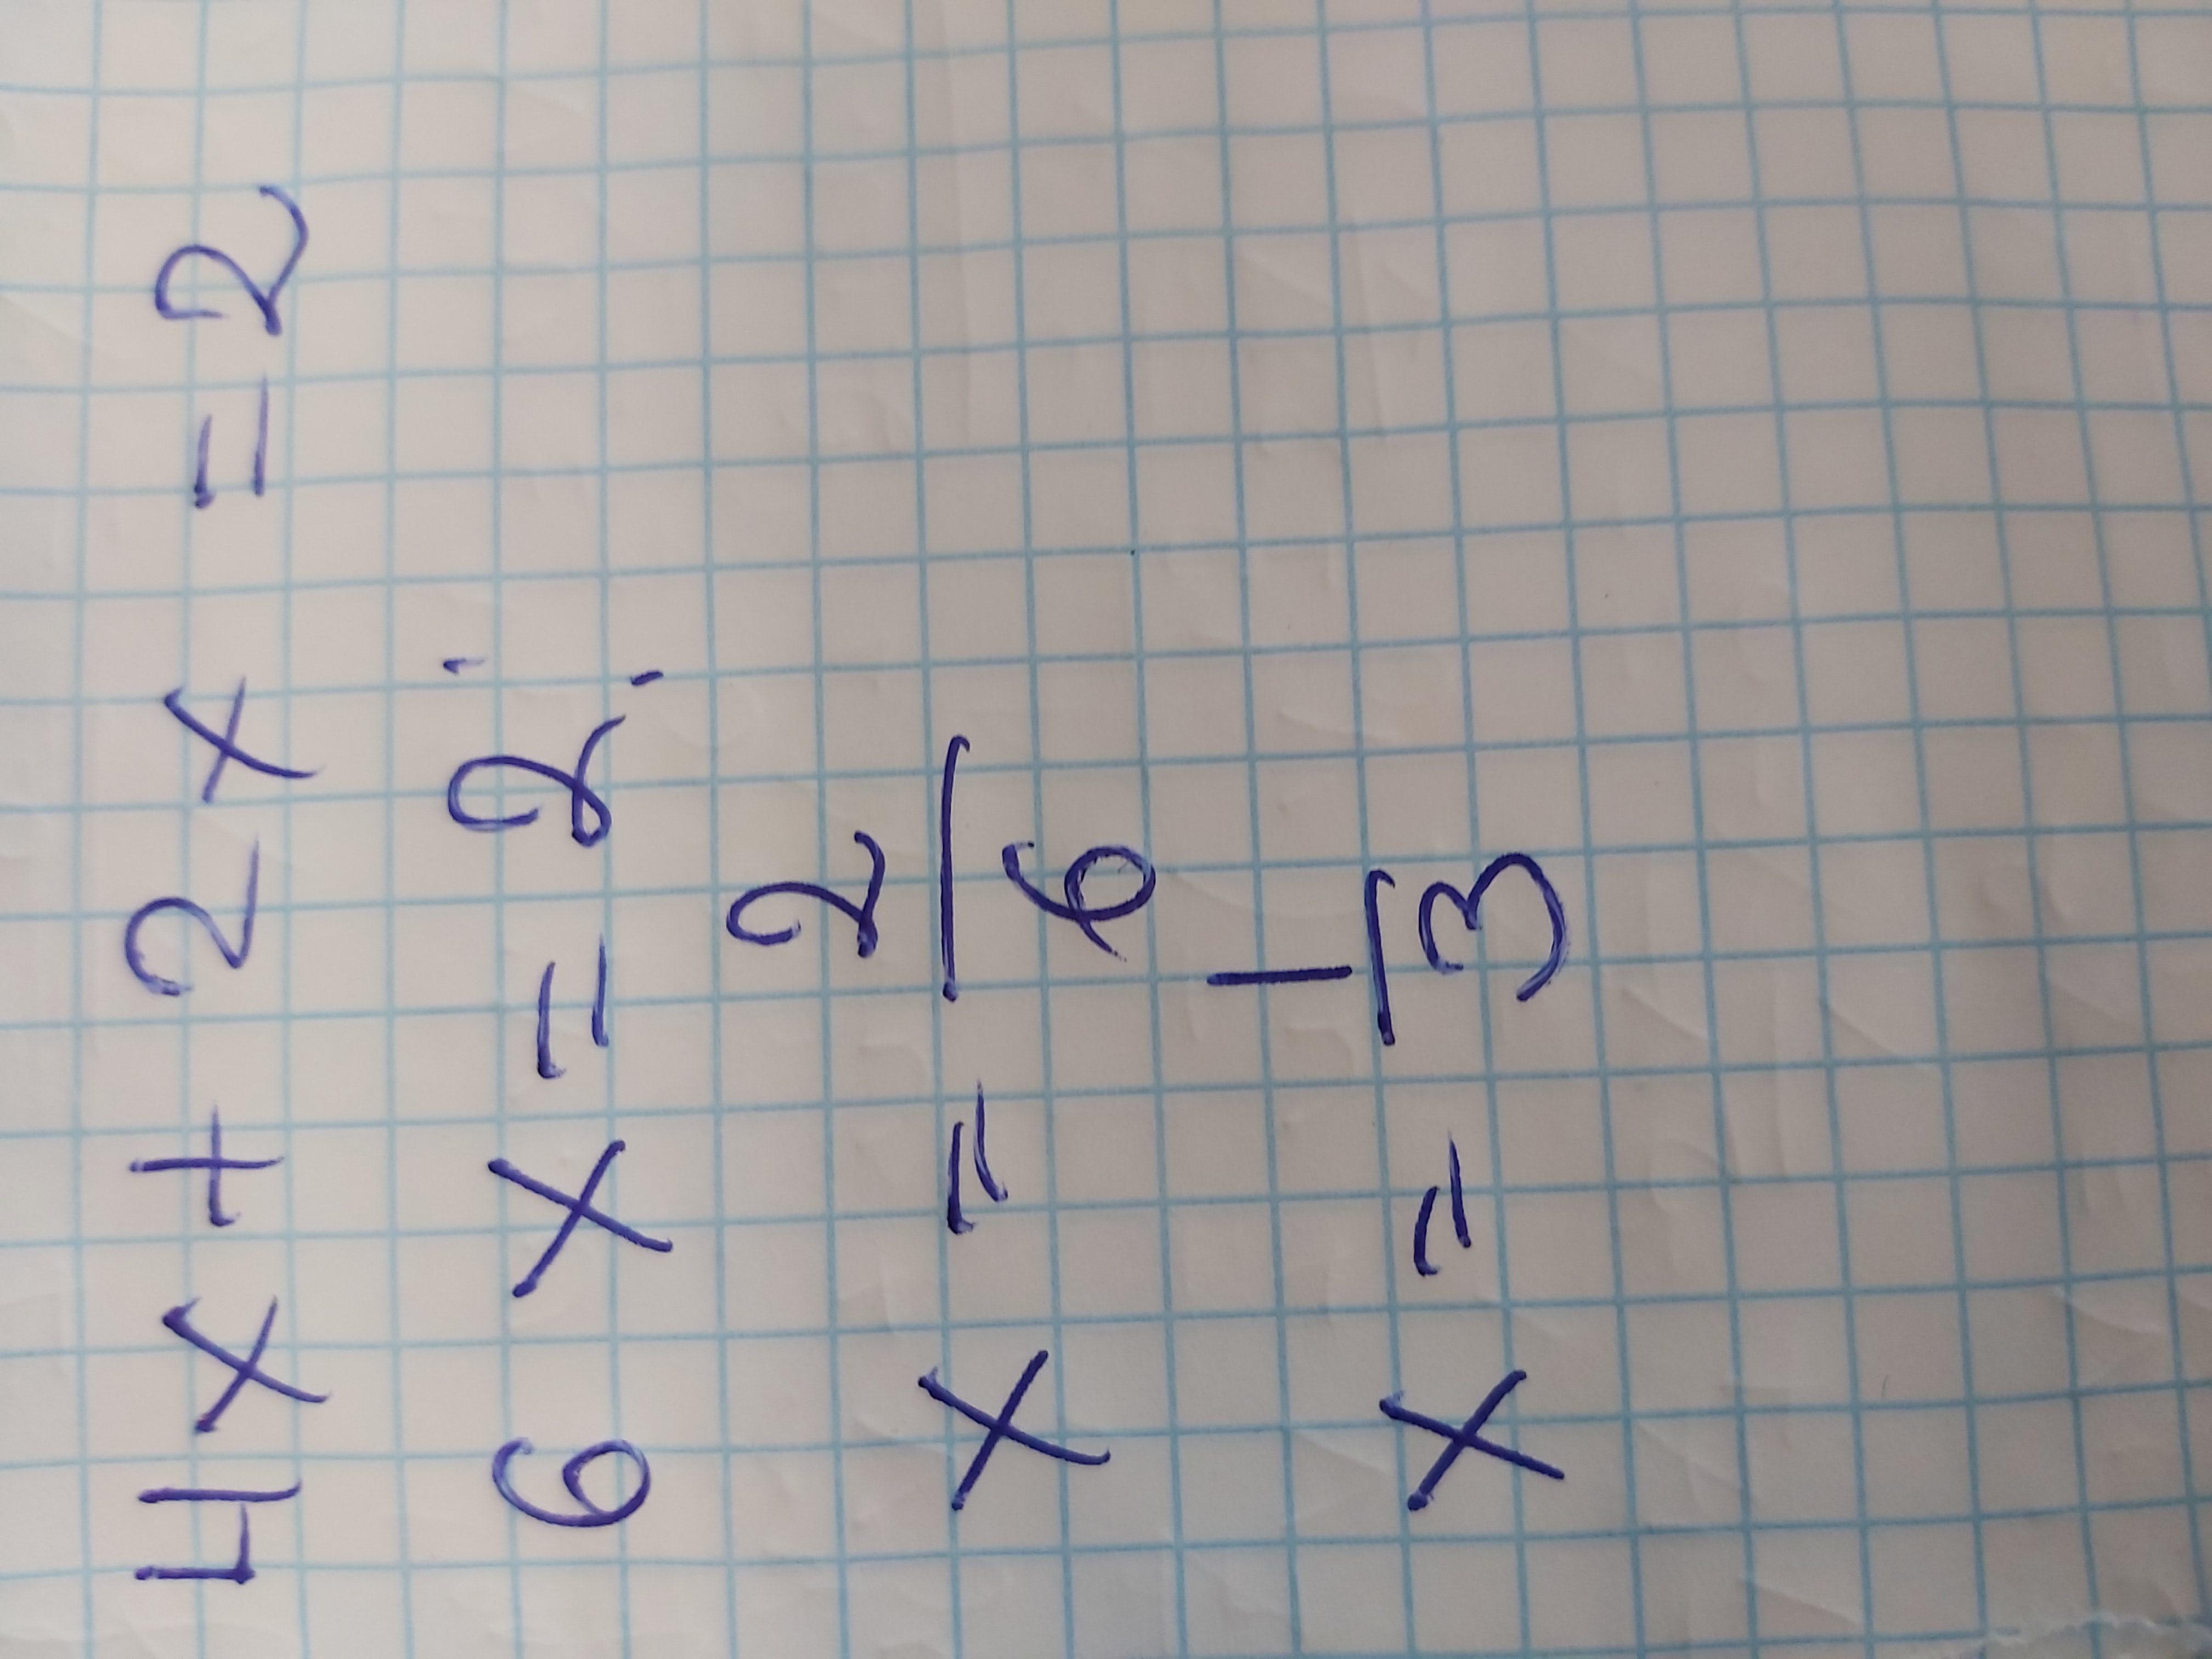 4x + 2x = 2
6x = 2
x = 2/6
x = 1/3